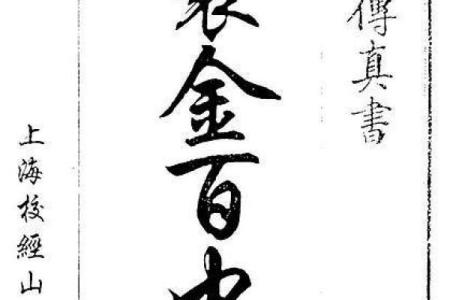 傳真書
金百中
上海校經山